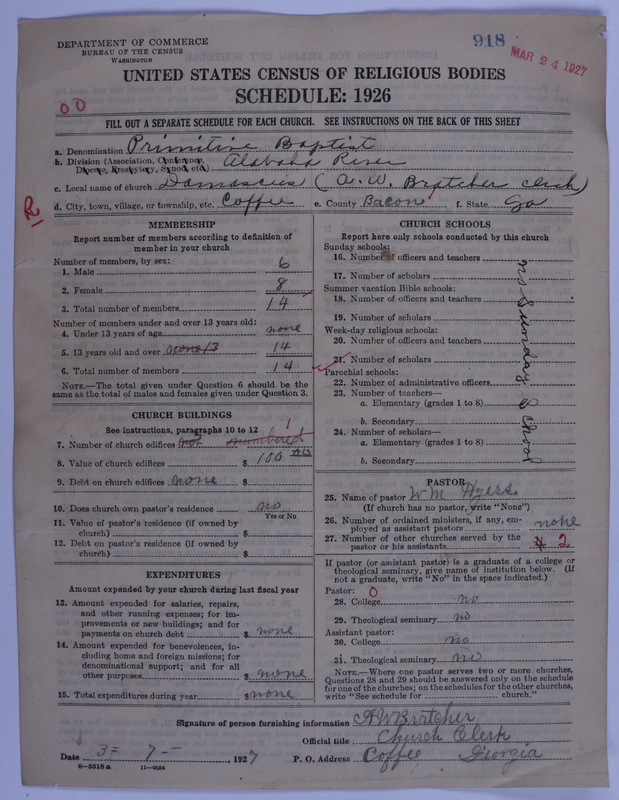 DEPARTMENT OF COMMERCE
BUREAU OF THE CENSUS
WASHINGTON
918
MAR 24 1927
UNITED STATES CENSUS OF RELIGIOUS BODIES
SCHEDULE: 1926
00
FILL OUT A SEPARATE SCHEDULE FOR EACH CHURCH. SEE INSTRUCTIONS ON THE BACK OF THIS SHEET
a. Denomination Primitive Baptist
b. Division (Association, Conference, Diocese, Presbytery, Synod, etc.) Alabaha River
c. Local name of church Damascus (A. W. Bratcher clerk)
d. City, town, village, or township, etc. Coffee e. County Bacon f. State Ga
R
MEMBERSHIP
Report number of members according to definition of
member in your church
Number of members, by sex:
1. Male 6
2. Female 8
3. Total number of members 14
Number of members under and over 13 years old:
4. Under 13 years of age none
5. 13 years old and over none 13 14
6. Total number of members 14
NOTE.—The total given under Question 6 should be the
same as the total of males and females given under Question 3.
CHURCH BUILDINGS
See instructions, paragraphs 10 to 12
7. Number of church edifices not numbered 1
8. Value of church edifices $ 100 00
9. Debt on church edifices none $
10. Does church own pastor's residence no
Yes or No
11. Value of pastor's residence (if owned by
church) $
12. Debt on pastor's residence (if owned by
church) $
EXPENDITURES
Amount expended by your church during last fiscal year
13. Amount expended for salaries, repairs,
and other running expenses; for im-
provements or new buildings; and for
payments on church debt $ none
14. Amount expended for benevolences, in-
cluding home and foreign missions; for
denominational support; and for all
other purposes $ none
15. Total expenditures during year $ none
CHURCH SCHOOLS
Report here only schools conducted by this church
Sunday schools:
16. Number of officers and teachers
17. Number of scholars
Summer vacation Bible schools:
18. Number of officers and teachers
19. Number of scholars
Week-day religious schools:
20. Number of officers and teachers
21. Number of scholars
Parochial schools:
22. Number of administrative officers
23. Number of teachers—
a. Elementary (grades 1 to 8)
b. Secondary
24. Number of scholars—
a. Elementary (grades 1 to 8)
b. Secondary
no Sunday School
PASTOR
25. Name of pastor W M Hyers
(If church has no pastor, write "None")
26. Number of ordained ministers, if any, em-
ployed as assistant pastors none
27. Number of other churches served by the
pastor or his assistants 2
If pastor (or assistant pastor) is a graduate of a college or
theological seminary, give name of institution below. (If
not a graduate, write "No" in the space indicated.)
Pastor: 0
28. College no
29. Theological seminary no
Assistant pastor:
30. College no
31. Theological seminary no
NOTE.—Where one pastor serves two or more churches,
Questions 28 and 29 should be answered only on the schedule
for one of the churches; on the schedules for the other churches,
write "See schedule for church."
Signature of person furnishing information A W Bratcher
Official title Church Clerk
Date 3 = 7 - , 1927 P. O. Address Coffee Georgia
8—5518 a 11—9054